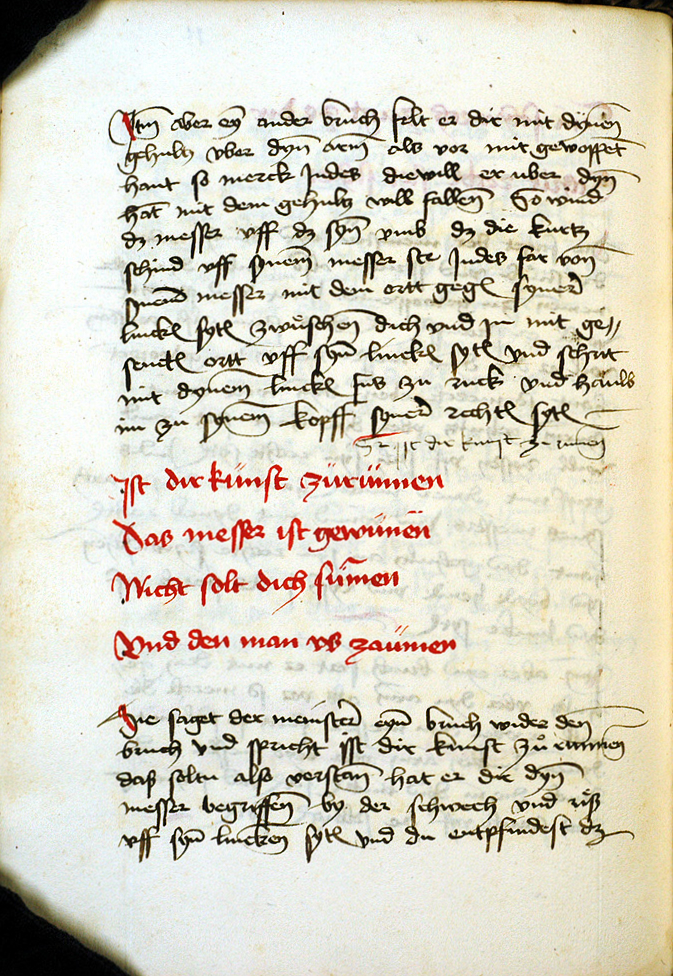 Itm aber eyn ander bruch felt er dir mit dynen
gehultz vber dyn arm als vor mit gewoppet
hant so merck Jndes diewill er uber dyn
hat mit dem gehultz will fallen So wind
dz messer vff dz syn vmb dz die kurtz
schnid vff synem messer ste Jndes far von
synem messer mit dem ortt gegen syner
lincken sytten zwuschen dich vnd jn mit ge//
senckten ortt vff syn lincken sytten vnd schrit
mit dynem lincken fus zu ruck vnd haüw
im zu synem kopff syner rechten sytten
Ist dir kunst zu rinnen
Ist dir künst zürünnen
Das messer ist gewünnen
Nicht solt dich sümen
Vnd den man vs zaümen
Hie saget der meinster eyn bruch wider den
bruch vnd spricht jst dir kunst zu rinnen
das soltu also verstan hat er dir dyn
messer begriffen by der schwech vnd
vff syn lincken sytten vnd du entpfindest dz